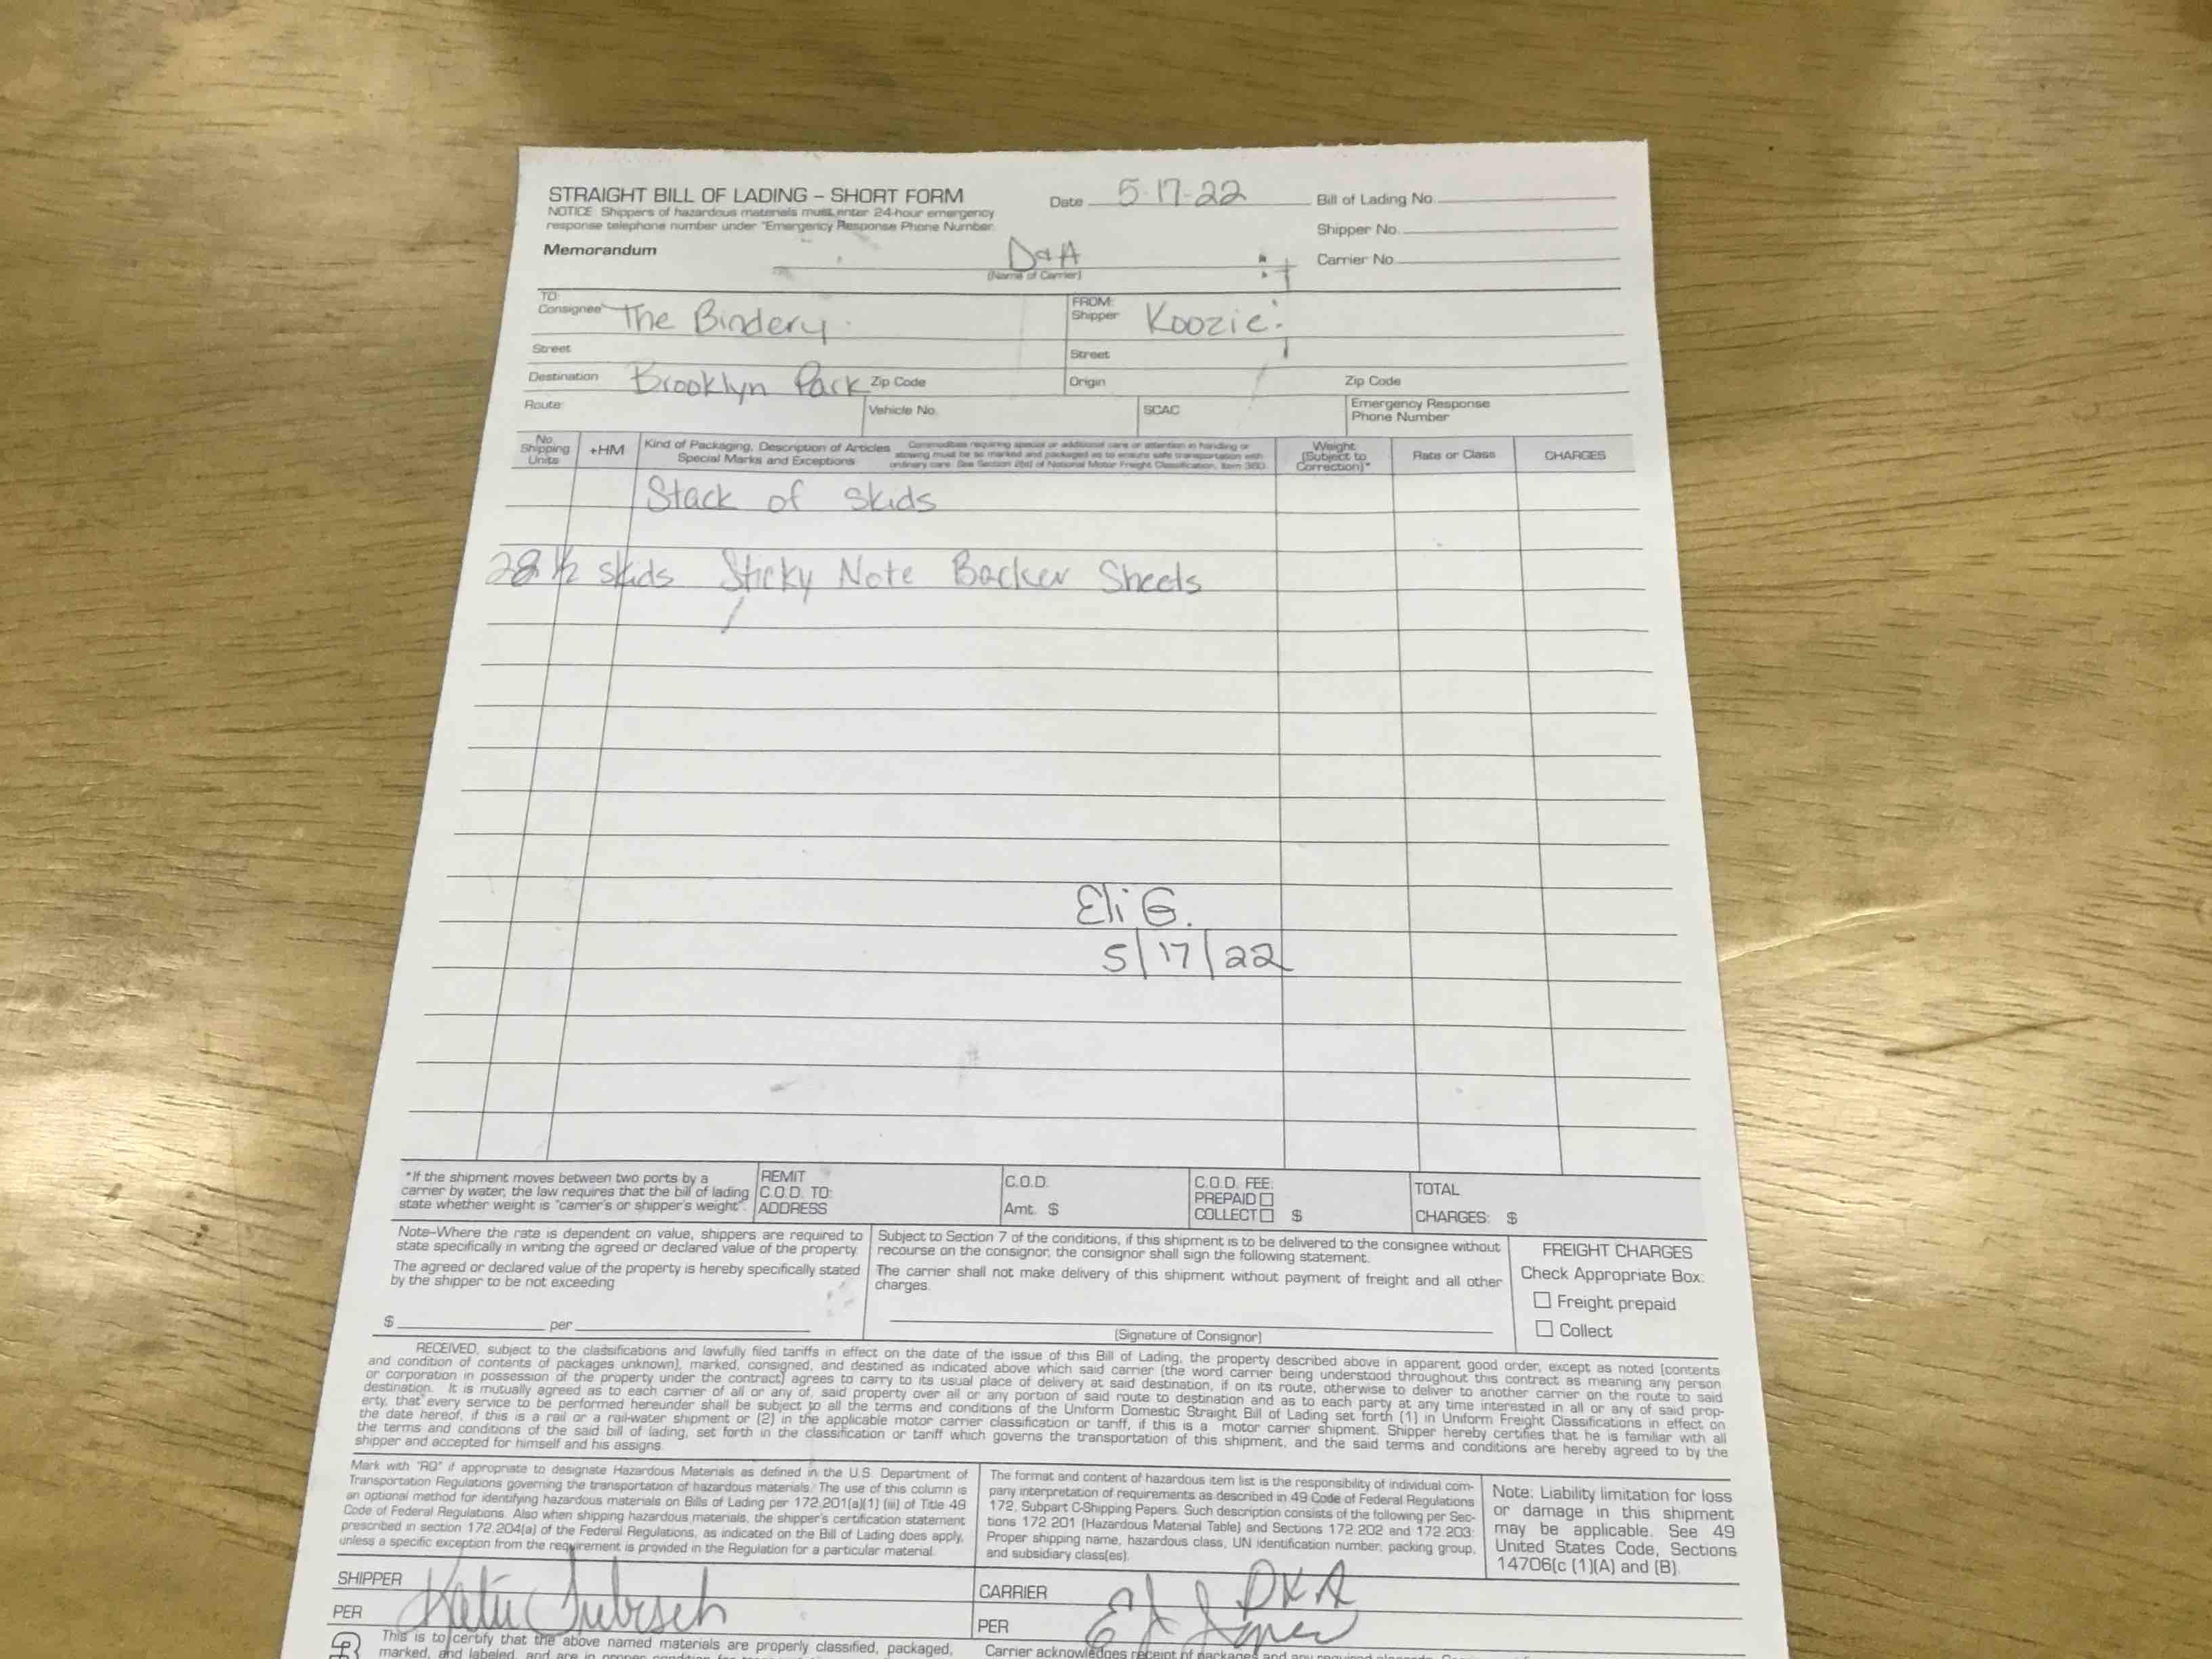 STRAIGHT BILL OF LADING – SHORT FORM
NOTICE: Shippers of hazardous materials must enter 24-hour emergency
response telephone number under "Emergency Response Phone Number.
Memorandum
Date 5-17-22
Bill of Lading No.
Shipper No.
Carrier No.
D&A
(Name of Carrier)
TO:
Consignee The Bindery
FROM:
Shipper Koozie
Street
Street
Destination Brooklyn Park Zip Code
Origin Zip Code
Route:
Vehicle No.
SCAC
Emergency Response
Phone Number
No.
Shipping
Units
+HM
Kind of Packaging, Description of Articles
Special Marks and Exceptions
Commodities requiring special or additional care or attention in handling or
stowing must be so marked and packaged as to ensure safe transportation with
ordinary care. See Section 2(e) of National Motor Freight Classification, Item 360.
Weight
(Subject to
Correction)*
Rate or Class
CHARGES
Stack of skids
28 1/2 skids Sticky Note Backer Sheets
Eli G.
5/17/22
*If the shipment moves between two ports by a
carrier by water, the law requires that the bill of lading
state whether weight is "carrier's or shipper's weight".
REMIT
C.O.D. TO:
ADDRESS
C.O.D.
Amt. $
C.O.D. FEE:
PREPAID
COLLECT $
TOTAL
CHARGES: $
Note–Where the rate is dependent on value, shippers are required to
state specifically in writing the agreed or declared value of the property.
The agreed or declared value of the property is hereby specifically stated
by the shipper to be not exceeding
$ per
Subject to Section 7 of the conditions, if this shipment is to be delivered to the consignee without
recourse on the consignor, the consignor shall sign the following statement.
The carrier shall not make delivery of this shipment without payment of freight and all other
charges.
(Signature of Consignor)
FREIGHT CHARGES
Check Appropriate Box:
Freight prepaid
Collect
RECEIVED, subject to the classifications and lawfully filed tariffs in effect on the date of the issue of this Bill of Lading, the property described above in apparent good order, except as noted (contents
and condition of contents of packages unknown), marked, consigned, and destined as indicated above which said carrier (the word carrier being understood throughout this contract as meaning any person
or corporation in possession of the property under the contract) agrees to carry to its usual place of delivery at said destination, if on its route, otherwise to deliver to another carrier on the route to said
destination. It is mutually agreed as to each carrier of all or any of, said property over all or any portion of said route to destination and as to each party at any time interested in all or any of said prop-
erty, that every service to be performed hereunder shall be subject to all the terms and conditions of the Uniform Domestic Straight Bill of Lading set forth (1) in Uniform Freight Classifications in effect on
the date hereof, if this is a rail or a rail-water shipment or (2) in the applicable motor carrier classification or tariff, if this is a motor carrier shipment. Shipper hereby certifies that he is familiar with all
the terms and conditions of the said bill of lading, set forth in the classification or tariff which governs the transportation of this shipment, and the said terms and conditions are hereby agreed to by the
shipper and accepted for himself and his assigns.
Mark with "RQ" if appropriate to designate Hazardous Materials as defined in the U.S. Department of
Transportation Regulations governing the transportation of hazardous materials. The use of this column is
an optional method for identifying hazardous materials on Bills of Lading per 172.201(a)(1) (iii) of Title 49
Code of Federal Regulations. Also when shipping hazardous materials, the shipper's certification statement
prescribed in section 172.204(a) of the Federal Regulations, as indicated on the Bill of Lading does apply,
unless a specific exception from the requirement is provided in the Regulation for a particular material.
The format and content of hazardous item list is the responsibility of individual com-
pany interpretation of requirements as described in 49 Code of Federal Regulations
172, Subpart C-Shipping Papers. Such description consists of the following per Sec-
tions 172.201 (Hazardous Material Table) and Sections 172.202 and 172.203:
Proper shipping name, hazardous class, UN identification number, packing group,
and subsidiary class(es).
Note: Liability limitation for loss
or damage in this shipment
may be applicable. See 49
United States Code, Sections
14706(c (1)(A) and (B).
SHIPPER
PER Katie
CARRIER D&A
PER EJ Jones
This is to certify that the above named materials are properly classified, packaged,
marked, and labeled, and are in proper condition for
Carrier acknowledges receipt of packages and any required